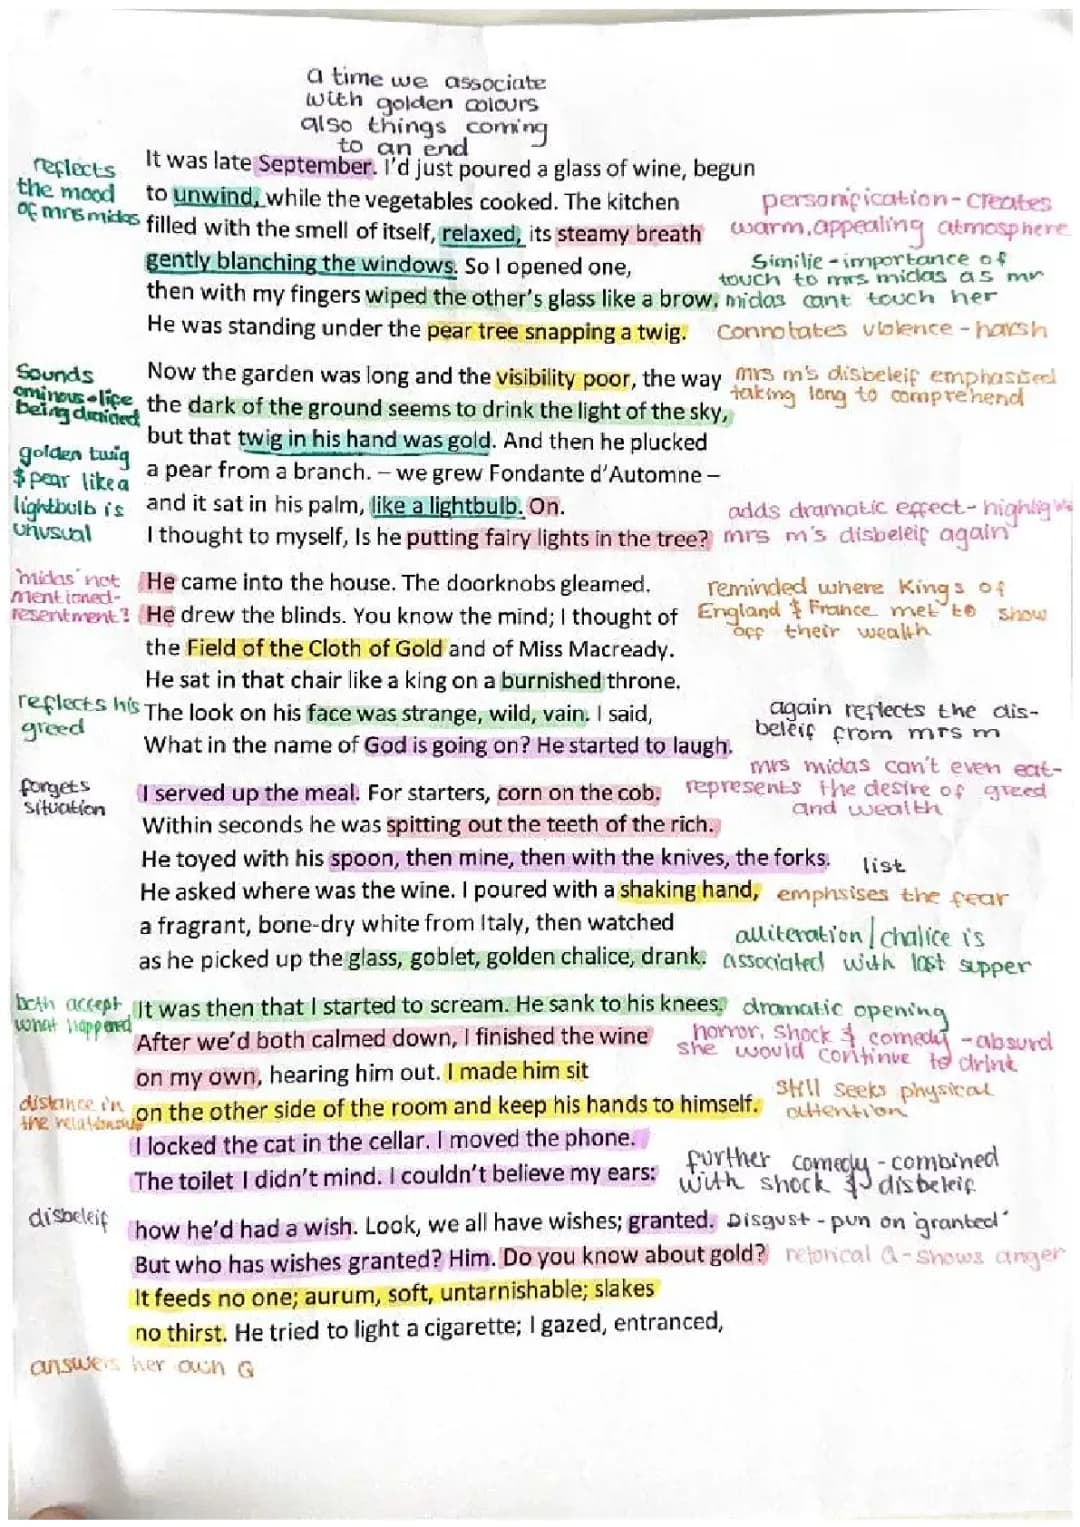 a time we associate
with golden colours
also things coming
to an end
reflects
the mood
of mrs midas
It was late September. I'd just poured a glass of wine, begun
to unwind, while the vegetables cooked. The kitchen
filled with the smell of itself, relaxed, its steamy breath
gently blanching the windows. So I opened one,
then with my fingers wiped the other's glass like a brow.
He was standing under the pear tree snapping a twig.
personification - creates
warm, appealing atmosphere
Similie - importance of
touch to mrs midas as mr
midas cant touch her
Connotates violence - harsh
Sounds
ominous - life
being drained
golden twig
$ pear like a
lightbulb is
unusual
Now the garden was long and the visibility poor, the way
the dark of the ground seems to drink the light of the sky,
but that twig in his hand was gold. And then he plucked
a pear from a branch. – we grew Fondante d'Automne –
and it sat in his palm, like a lightbulb. On.
I thought to myself, Is he putting fairy lights in the tree?
mrs m's disbeleif emphasised
taking long to comprehend
adds dramatic effect - highlights
mrs m's disbeleif again
'midas' not
mentioned -
resentment?
He came into the house. The doorknobs gleamed.
He drew the blinds. You know the mind; I thought of
the Field of the Cloth of Gold and of Miss Macready.
He sat in that chair like a king on a burnished throne.
The look on his face was strange, wild, vain. I said,
What in the name of God is going on? He started to laugh.
reminded where Kings of
England & France met to show
off their wealth
reflects his
greed
again reflects the dis-
beleif from mrs m
forgets
situation
I served up the meal. For starters, corn on the cob.
Within seconds he was spitting out the teeth of the rich.
He toyed with his spoon, then mine, then with the knives, the forks.
He asked where was the wine. I poured with a shaking hand,
a fragrant, bone-dry white from Italy, then watched
as he picked up the glass, goblet, golden chalice, drank.
mrs midas can't even eat -
represents the desire of greed
and wealth
list
emphsises the fear
alliteration / chalice is
associated with last supper
both accept
what happened
distance in
the relationship
It was then that I started to scream. He sank to his knees.
After we'd both calmed down, I finished the wine
on my own, hearing him out. I made him sit
on the other side of the room and keep his hands to himself.
I locked the cat in the cellar. I moved the phone.
The toilet I didn't mind. I couldn't believe my ears:
dramatic opening
horror, shock & comedy - absurd
she would continue to drink
still seeks physical
attention
further comedy - combined
with shock & disbeleif
disbeleif
how he'd had a wish. Look, we all have wishes; granted.
But who has wishes granted? Him. Do you know about gold?
It feeds no one; aurum, soft, untarnishable; slakes
no thirst. He tried to light a cigarette; I gazed, entranced,
Disgust - pun on 'granted'
retorical Q - shows anger
answers her own Q